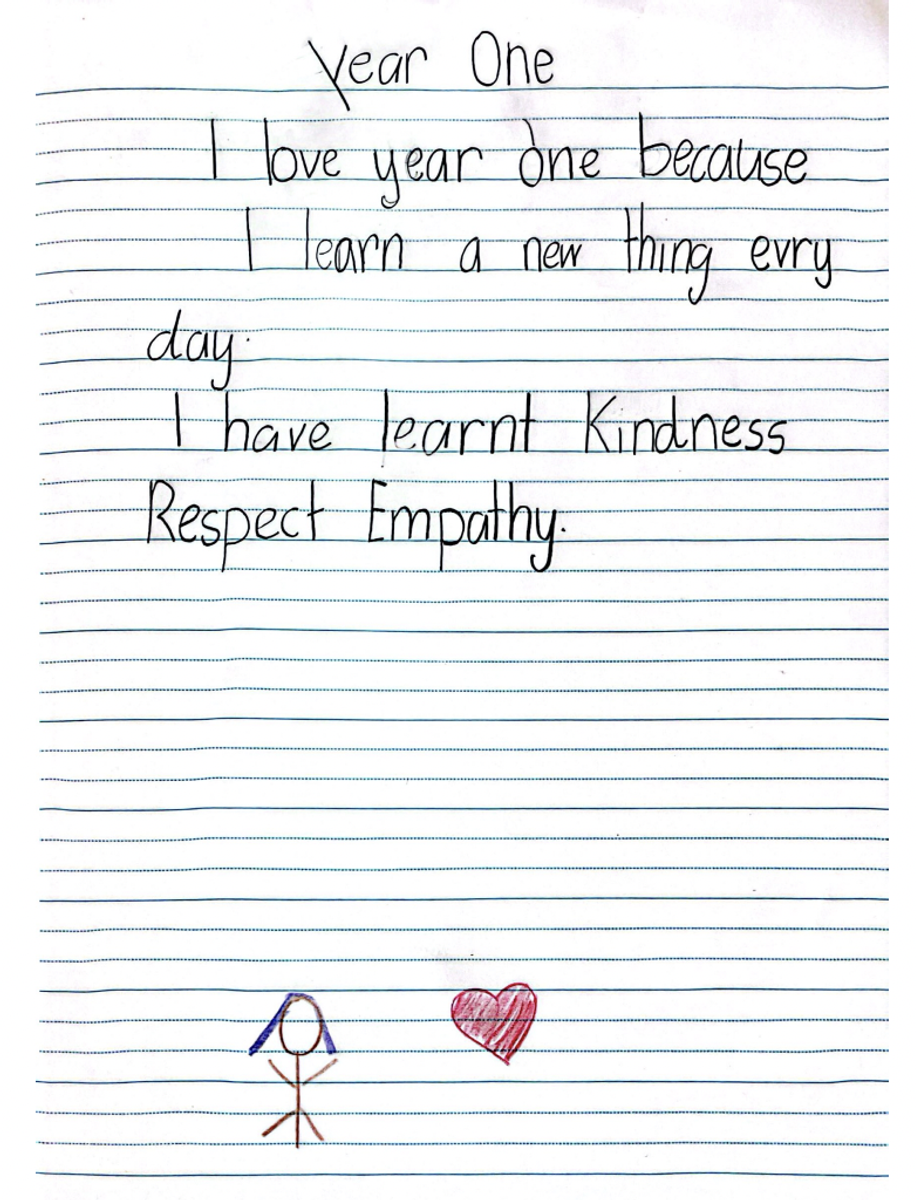 Year One
I love year one because
I learn a new thing evry
day.
I have learnt Kindness
Respect Empathy.